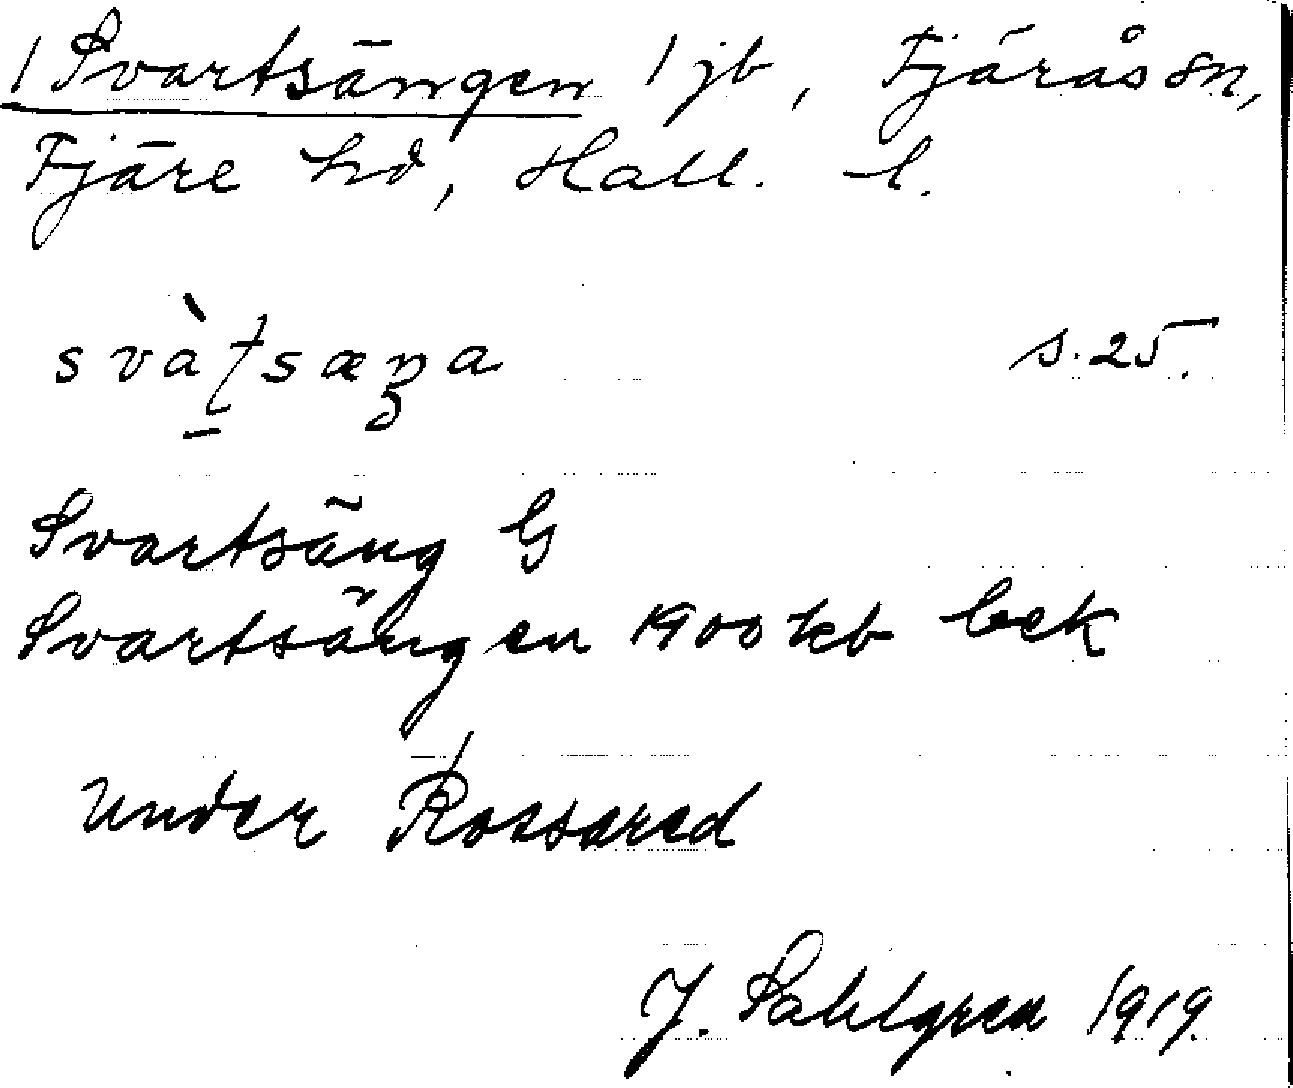 1 Svartsängen 1 jb, Fjärås sn,
Fjäre hd, Hall. l.
svàʈsæŋa s. 25.
Svartsäng G
Svartsängen 1900 kb bek
under Rossared
J. Sahlgren 1919.